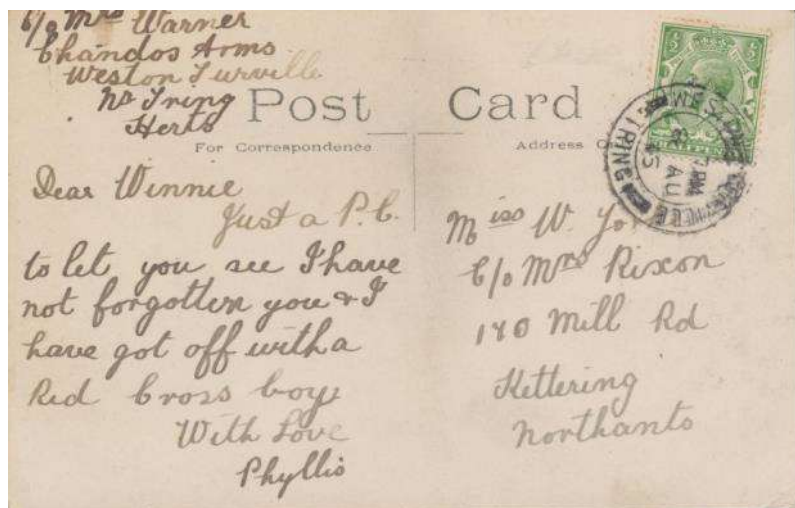 C/o Mrs Warner
Chandos Arms
Weston Turville
Nr Tring
Herts
Post Card
For Correspondence
Address
Dear Winnie
Just a P.C.
to let you see I have
not forgotten you & I
have got off with a
Red Cross boy
With Love
Phyllis
TRING
7 PM
AU
15
Miss W.
C/o Mrs Rixon
Mill Rd
Kettering
Northants